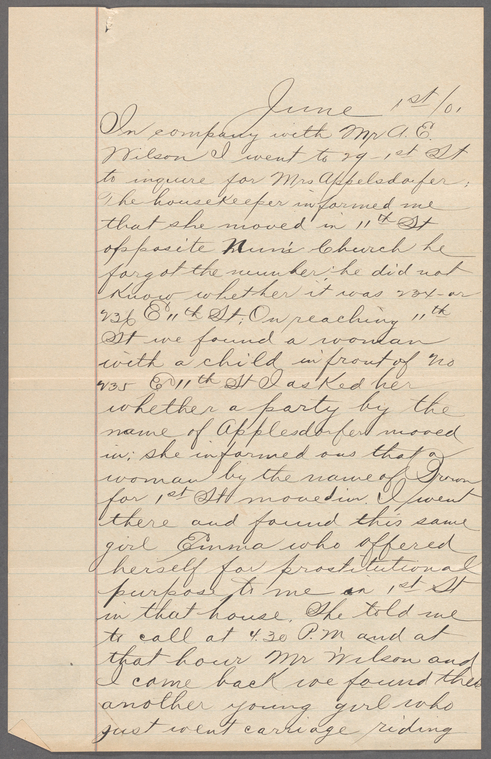 June 1st/01
In company with Mr A. E.
Wilson I went to 29-1st St
to inquire for Mrs Appelsdorfer;
The housekeeper informed me
that she moved in 11th St
opposite Nun's Church he
forgot the number; he did not
know whether it was 234-or
236 E 11th St; On reaching 11th
St we found a woman
with a child in front of No
235 E 11th St I asked her
whether a party by the
name of Applesdorfer moved
in; she informed ous that a
woman by the name of
for 1st St moved in. I went
there and found this same
girl Emma who offered
herself for prostitutional
purpose to me on 1st St
in that house. She told me
to call at 4.30 P.M and at
that hour Mr Wilson and
I came back we found
another young girl who
just went carriage riding